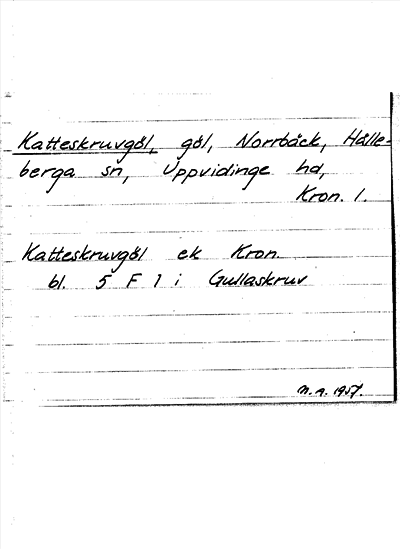 Katteskruvgöl, göl, Norrbäck, Hälle-
berga sn, Uppvidinge hd,
Kron. l.
Katteskruvgöl ek Kron.
bl. 5 F 1 i Gullaskruv
M.A. 1957.